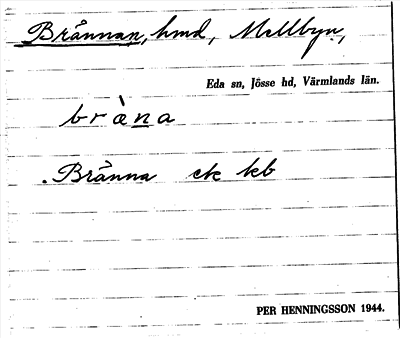 Brännan, hmd, Mellbyn,
Eda sn, Jösse hd, Värmlands län.
bràna
Bränna ek kb
PER HENNINGSSON 1944.